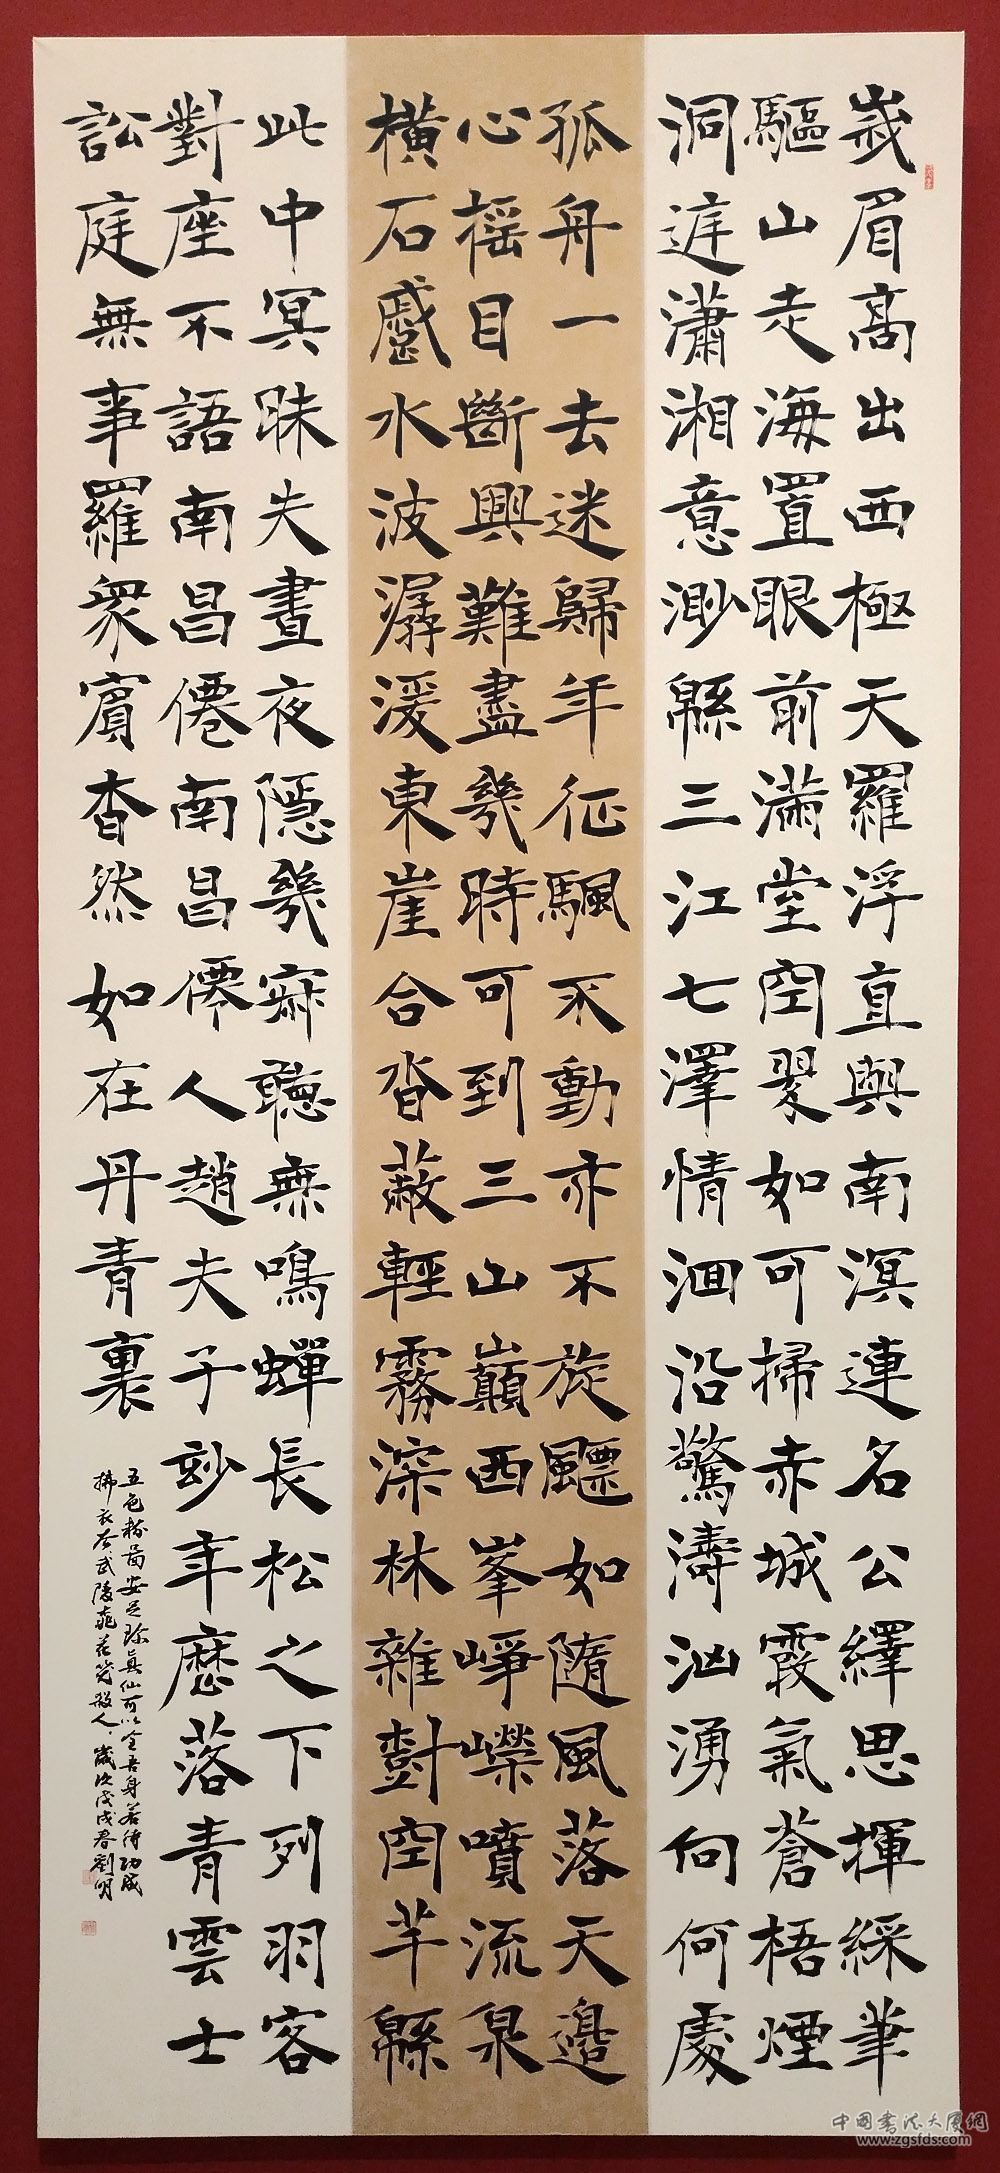 峩眉高出西極天羅浮直與南溟連名公繹思揮綵筆
驅山走海置眼前滿堂空翠如可掃赤城霞氣蒼梧煙
洞庭瀟湘意渺緜三江七澤情洄沿驚濤洶湧向何處
孤舟一去迷歸年征颿不動亦不旋飄如隨風落天邊
心搖目斷興難盡幾時可到三山巔西峯崢嶸噴流泉
橫石蹙水波潺湲東崖合沓蔽輕霧深林雜樹空芊緜
此中冥昧失晝夜隱幾寂聽無鳴蟬長松之下列羽客
對座不語南昌僊南昌僊人趙夫子妙年歷落青雲士
訟庭無事羅衆賓杳然如在丹青裏
五色粉圖安足珍真仙可以全吾身若待功成
拂衣去武陵桃花笑殺人歲次戊戌春劉明
中国书法大厦網
www.zgsfds.com